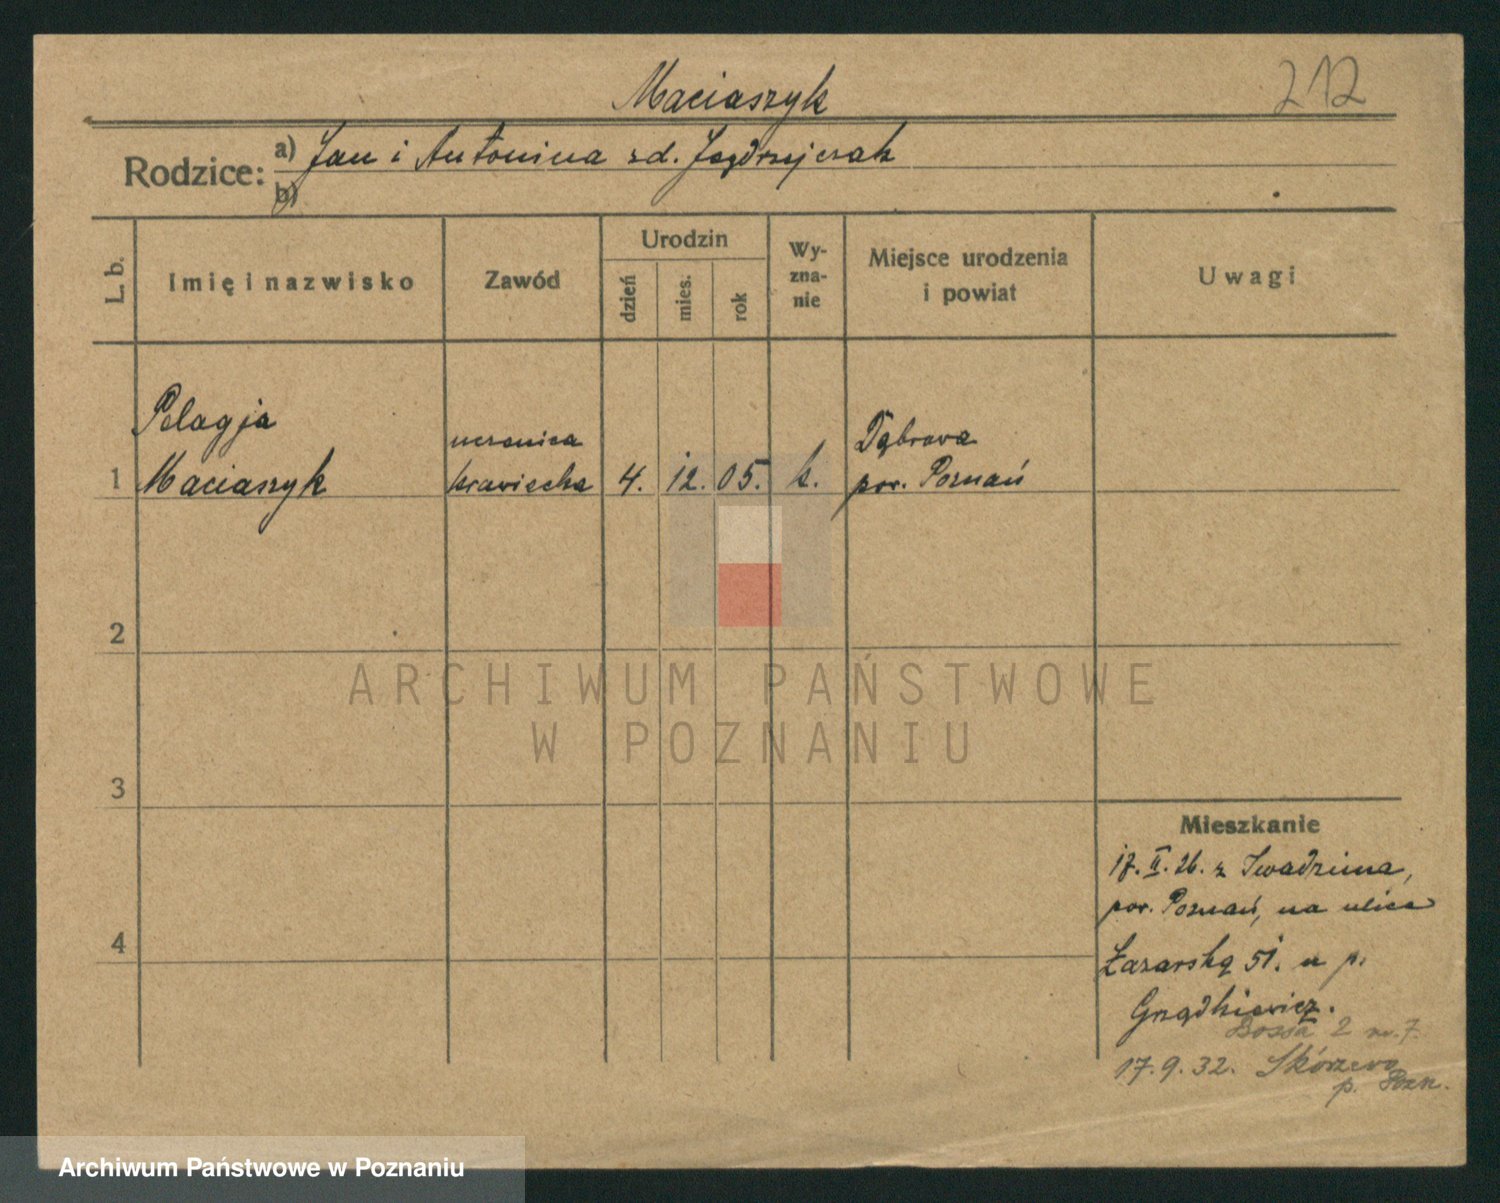 Maciaszyk
212
Rodzice:
a) Jan i Antonina zd. Jędrzejczak
b)
L. b.
Imię i nazwisko
Zawód
Urodzin
dzień
mies.
rok
Wy-
zna-
nie
Miejsce urodzenia
i powiat
Uwagi
Pelagja
uczenica
Dąbrowa
1 Maciaszyk krawiecka 4. 12. 05. k. pow. Poznań
2
3
4
ARCHIWUM PAŃSTWOWE
W POZNANIU
Mieszkanie
17. II. 26. z Swadzima,
pow. Poznań, na ulicę
Łazarską 51. u p.
2 m. 7.
17. 9. 32. Skórzewo
p. Pozn.
Archiwum Państwowe w Poznaniu